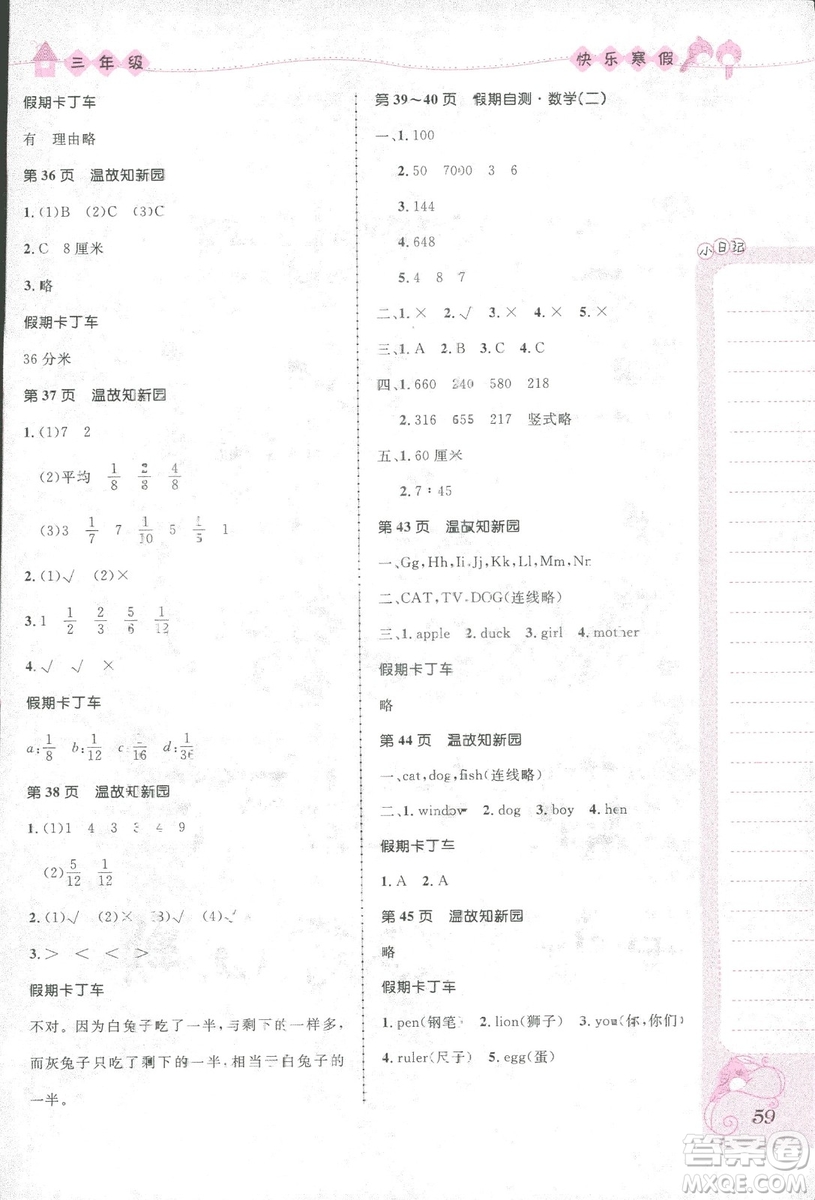 三年级
快乐寒假
假期卡丁车
有 理由略
第36页 温故知新园
1.(1)B (2)C (3)C
2.C 8厘米
3.略
假期卡丁车
36分米
第37页 温故知新园
1.(1)7 2
(2)平均 1/8 2/8 4/8
(3)3 1/7 7 1/10 5 1/5 1
2.(1)√ (2)×
3.1 1/2 2/3 5/6 1/12
4.√ √ ×
假期卡丁车
a:1/8 b:1/12 c:1/16 d:1/36
第38页 温故知新园
1.(1)1 4 3 4 9
(2)5/12 1/12
2.(1)√ (2)× (3)√ (4)√
3.> < < >
假期卡丁车
不对。因为白兔子吃了一半,与剩下的一样多,
而灰兔子只吃了剩下的一半,相当于白兔子的
一半。
第39~40页 假期自测·数学(二)
一、1.100
2.50 7000 3 6
3.144
4.648
5.4 8 7
二、1.× 2.√ 3.× 4.× 5.×
三、1.A 2.B 3.C 4.C
四、1.660 240 580 218
2.316 655 217 竖式略
五、1.60厘米
2.7:45
第43页 温故知新园
一、Gg,Hh,Ii,Jj,Kk,Ll,Mm,Nn
二、CAT,TV,DOG(连线略)
三、1.apple 2.duck 3.girl 4.mother
假期卡丁车
略
第44页 温故知新园
一、cat,dog,fish(连线略)
二、1.window 2.dog 3.boy 4.hen
假期卡丁车
1.A 2.A
第45页 温故知新园
略
假期卡丁车
1.pen(钢笔) 2.lion(狮子) 3.you(你,你们)
4.ruler(尺子) 5.egg(蛋)
小日记
59
答案圈
MXQE.COM